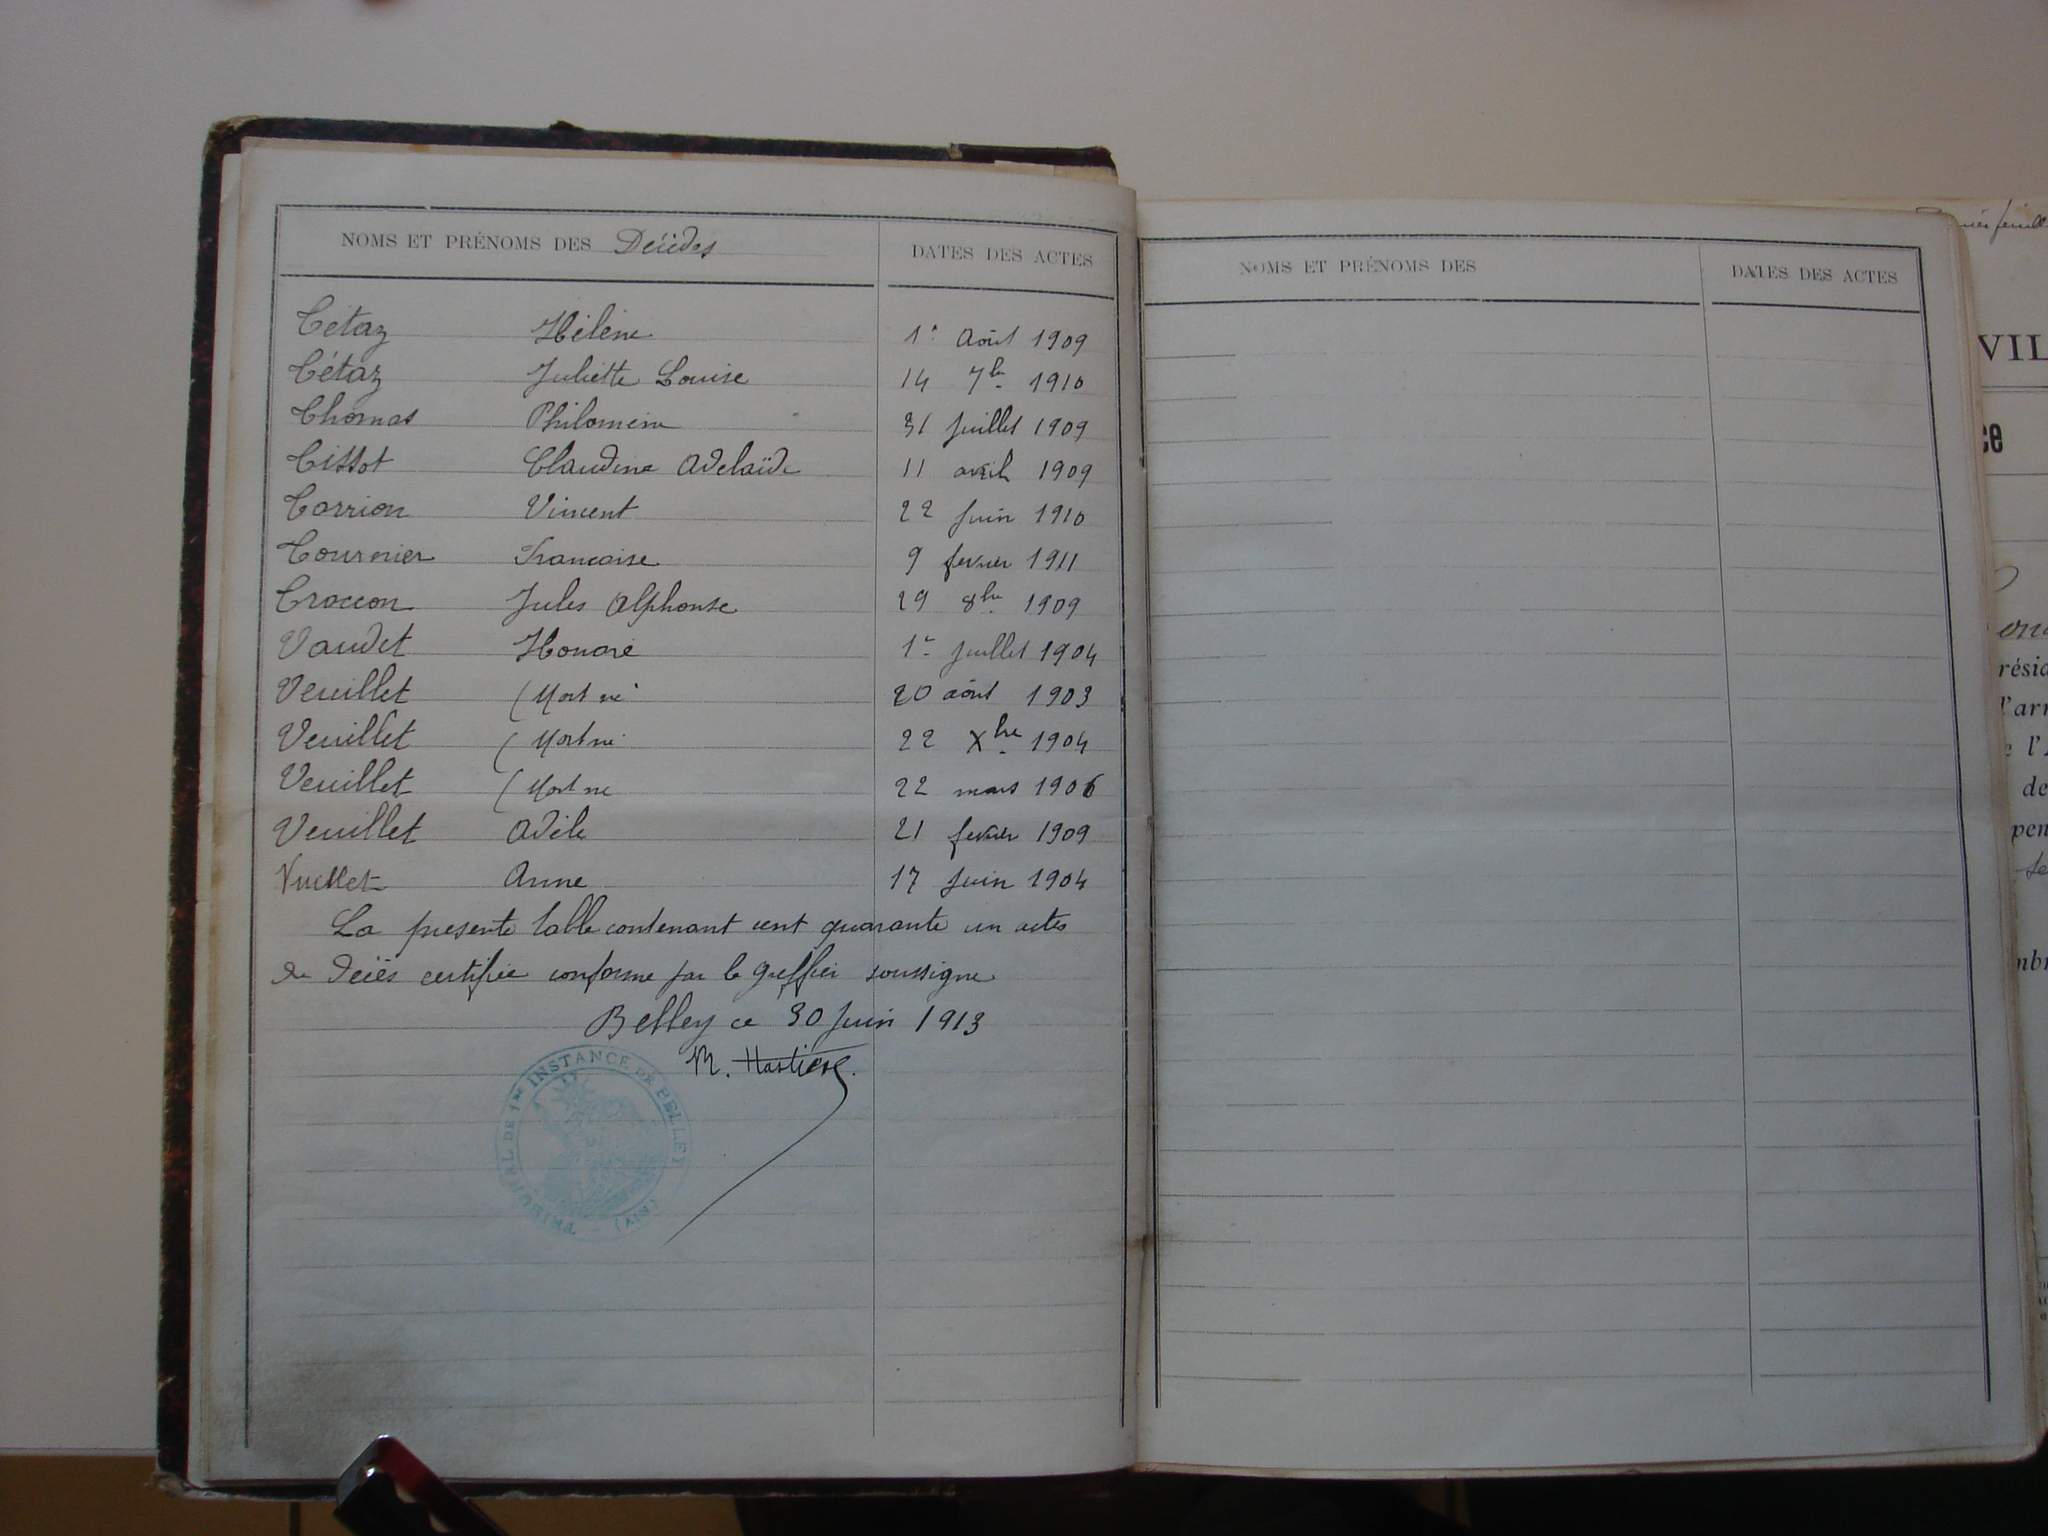 NOMS ET PRÉNOMS DES Décédés DATES DES ACTES
Tétaz Hélène 1er Août 1909
Tétaz Juliette Louise 14 7bre 1910
Thomas Philomène 31 Juillet 1909
Tissot Claudine Adelaïde 11 avril 1909
Torrion Vincent 22 Juin 1910
Tournier Francoise 9 fevrier 1911
Traccon Jules Alphonse 29 8bre 1909
Vaudet Honoré 1er Juillet 1904
Veuillet (Mort né 20 août 1903
Veuillet (Mort né 22 Xbre 1904
Veuillet (Mort né 22 mars 1906
Veuillet Adèle 21 fevrier 1909
Vuillet Anne 17 Juin 1904
La presente table contenant cent quarante un actes
de décès certifiée conforme par le Greffier soussigné
Belley ce 30 Juin 1913
M.
TRIBUNAL DE 1RE INSTANCE DE BELLEY (AIN)
NOMS ET PRÉNOMS DES DATES DES ACTES
VIL
ce
résid
l'arr
de
pen